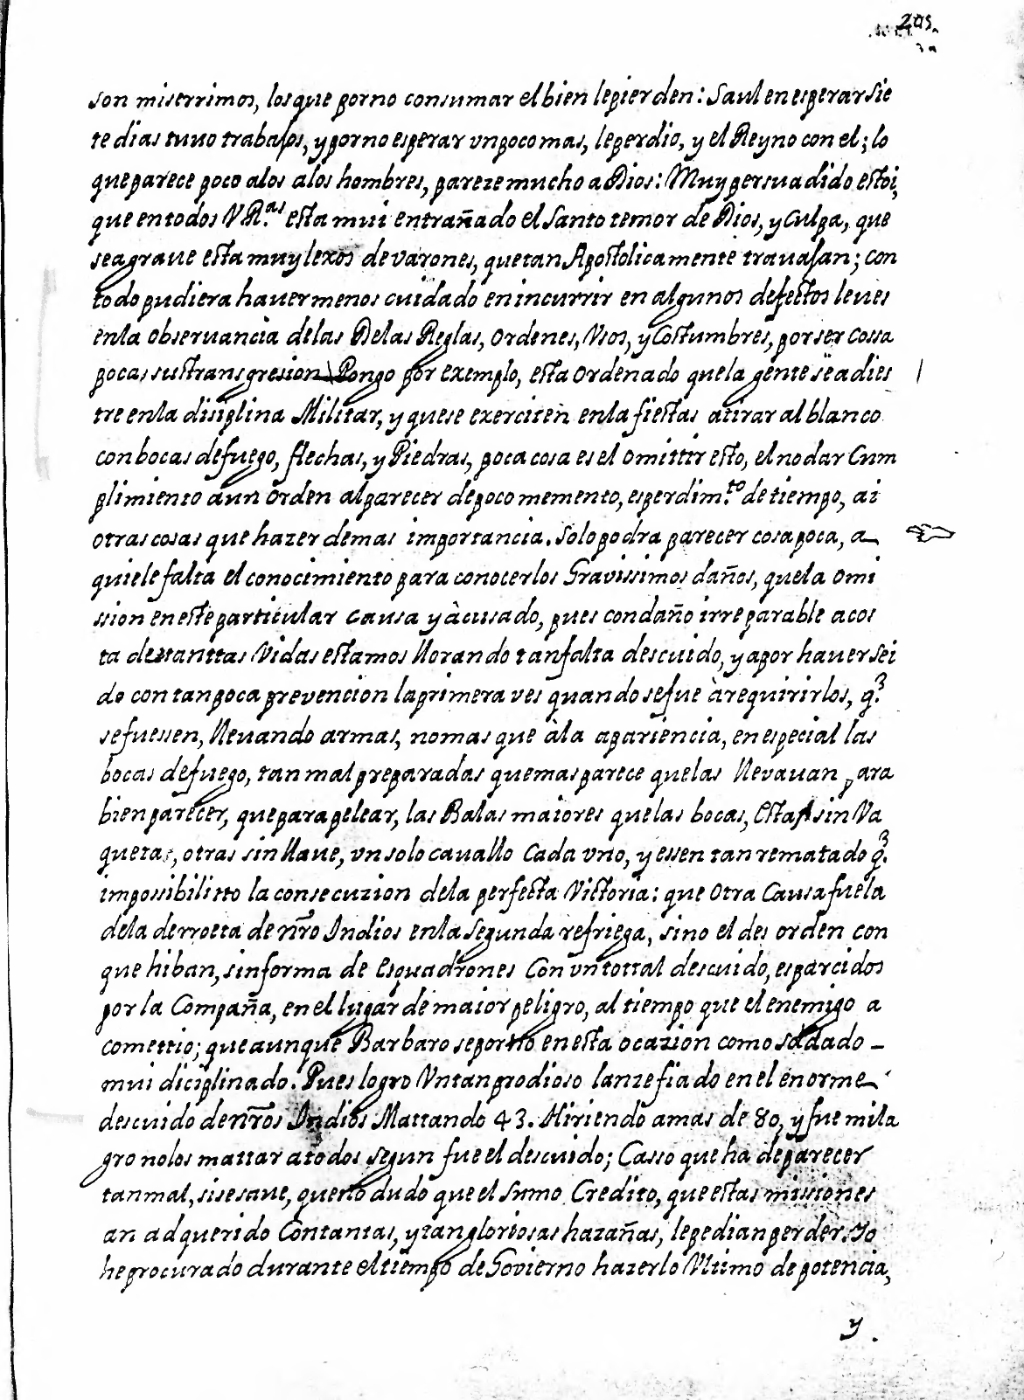 205.
son miserrimos, los que porno consumar el bien lepierden: Saul en esperar sie
te dias tuuo trabajos, y porno esperar vn poco mas, leperdio, y el Reyno con el; lo
que parece poco alos alos hombres, pareze mucho a Dios: Muy persuadido estoi,
que entodos VR.as esta mui entrañado el Santo temor de Dios, y Culpa, que
sea graue esta muy lexos de varones, que tan Apostolicamente trauajan; con
todo pudiera hauer menos cuidado en incurrir en algunos defectos leues
enla obseruancia delas Delas Reglas, ordenes, Vsos, y Costumbres, por ser cossa
pocas sustransgresion Pongo por exemplo, esta ordenado quela gente se adies
tre enla disiplina Militar, y quese exerciten enla fiestas atirar al blanco
con bocas defuego, flechas, y Piedras, poca cosa es el omittir esto, el no dar Cum
plimiento aun orden alparecer depoco memento, esperdim.to de tiempo, ai
otras cosas que hazer demas importancia. Solo podra parecer cosa poca, a
quiele falta el conocimiento para conocerlos Gravissimos daños, quela omi
ssion en este particular causa y àcusado, pues condaño irreparable acos
ta detanttas Vidas estamos llorando tanfalta descuido, y apor hauer sei
do con tanpoca preuencion laprimera ves quando sefue àrequirirlos, q.
sefuessen, lleuando armas, nomas que àla apariencia, en especial las
bocas defuego, tan mal preparadas quemas parece quelas lleuauan para
bien parecer, que para pelear, las Balas maiores que las bocas, Estas sin Va
quetas, otras sin llaue, vn solo cauallo Cada vno, y essen tan rematado q.
impossibilitto la consecuzion dela perfecta Victoria: que otra Causa fuela
dela derrota de nrõ Indios enla segunda refriega, sino el des orden con
que hiban, sinforma de Esquadrones Con vn tottal descuido, esparcidos
por la Compaña, en el lugar de maior peligro, al tiempo que el enemigo a
comettio; que aunque Barbaro seportò en esta ocazion como soldado -
mui diciplinado. Pues logro Vn tan prodioso lanze fiado en el enorme
descuido de nrõs Indios Mattando 43. Hiriendo amas de 80, y fue mila
gro nolos mattar atodos segun fue el descuido; Casso que ha de parecer
tanmal, sisesaue, queno dudo que el sumo Credito, que estas missiones
an adquerido Contantas, y tan gloriosas hazañas, lepedian perder. Yo
he procurado durante el tiempo de Govierno hazerlo Vltimo de potencia,
y.